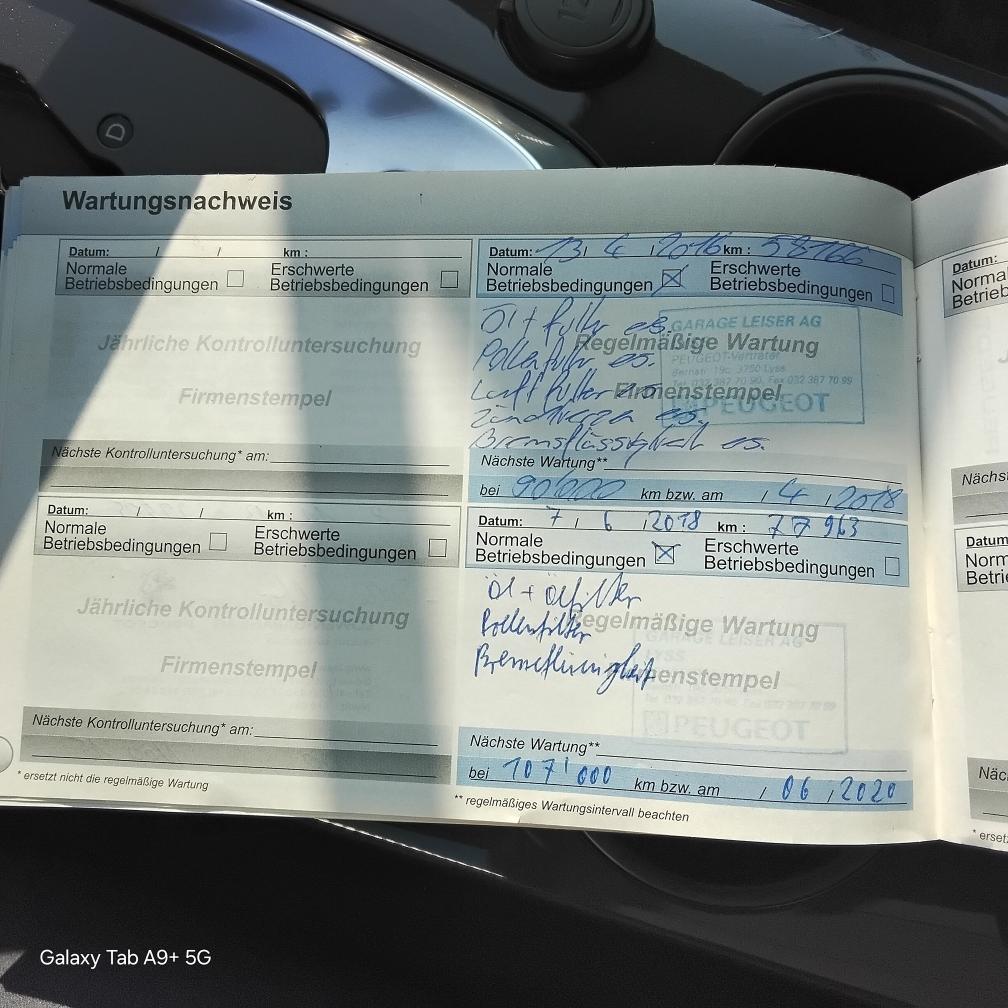 Wartungsnachweis
Datum: / / km :
Normale Betriebsbedingungen
Erschwerte Betriebsbedingungen
Jährliche Kontrolluntersuchung
Firmenstempel
Nächste Kontrolluntersuchung* am:
Datum: 13 / 4 / 2016 km : 58166
Normale Betriebsbedingungen
Erschwerte Betriebsbedingungen
Regelmäßige Wartung
Firmenstempel
Öl + es.
Pollenfilter es.
Luftfilter es
es.
Bremsflüssigkeit es.
GARAGE LEISER AG
PEUGEOT-Vertreter
3250 Lyss
Tel. 032 387 70 90, Fax 032 387 70 99
PEUGEOT
Nächste Wartung**
bei 90'000 km bzw. am / 4 / 2018
Datum: / / km :
Normale Betriebsbedingungen
Erschwerte Betriebsbedingungen
Jährliche Kontrolluntersuchung
Firmenstempel
Nächste Kontrolluntersuchung* am:
* ersetzt nicht die regelmäßige Wartung
Datum: 7 / 6 / 2018 km : 77963
Normale Betriebsbedingungen
Erschwerte Betriebsbedingungen
Regelmäßige Wartung
Firmenstempel
Öl + Ölfilter
Pollenfilter
Bremsflüssigkeit
GARAGE LEISER AG
LYSS
PEUGEOT
Nächste Wartung**
bei 107'000 km bzw. am / 06 / 2020
** regelmäßiges Wartungsintervall beachten
Datum:
Datum:
Galaxy Tab A9+ 5G